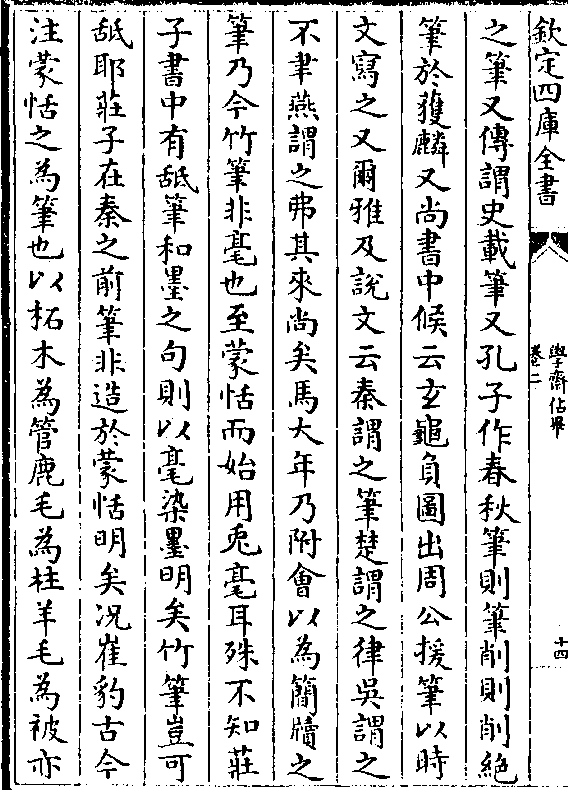 欽定四庫全書
學齋佔畢
卷二
十四
之筆又傳謂史載筆又孔子作春秋筆則筆削則削絶
筆於獲麟又尚書中候云玄龜負圖出周公援筆以時
文寫之又爾雅及說文云秦謂之筆楚謂之律吳謂之
不聿燕謂之弗其來尚矣馬大年乃附會以為簡牘之
筆乃今竹筆非毫也至蒙恬而始用兎毫耳殊不知莊
子書中有舐筆和墨之句則以毫染墨明矣竹筆豈可
舐耶莊子在秦之前筆非造於蒙恬明矣况崔豹古今
注蒙恬之為筆也以柘木為管鹿毛為柱羊毛為被亦